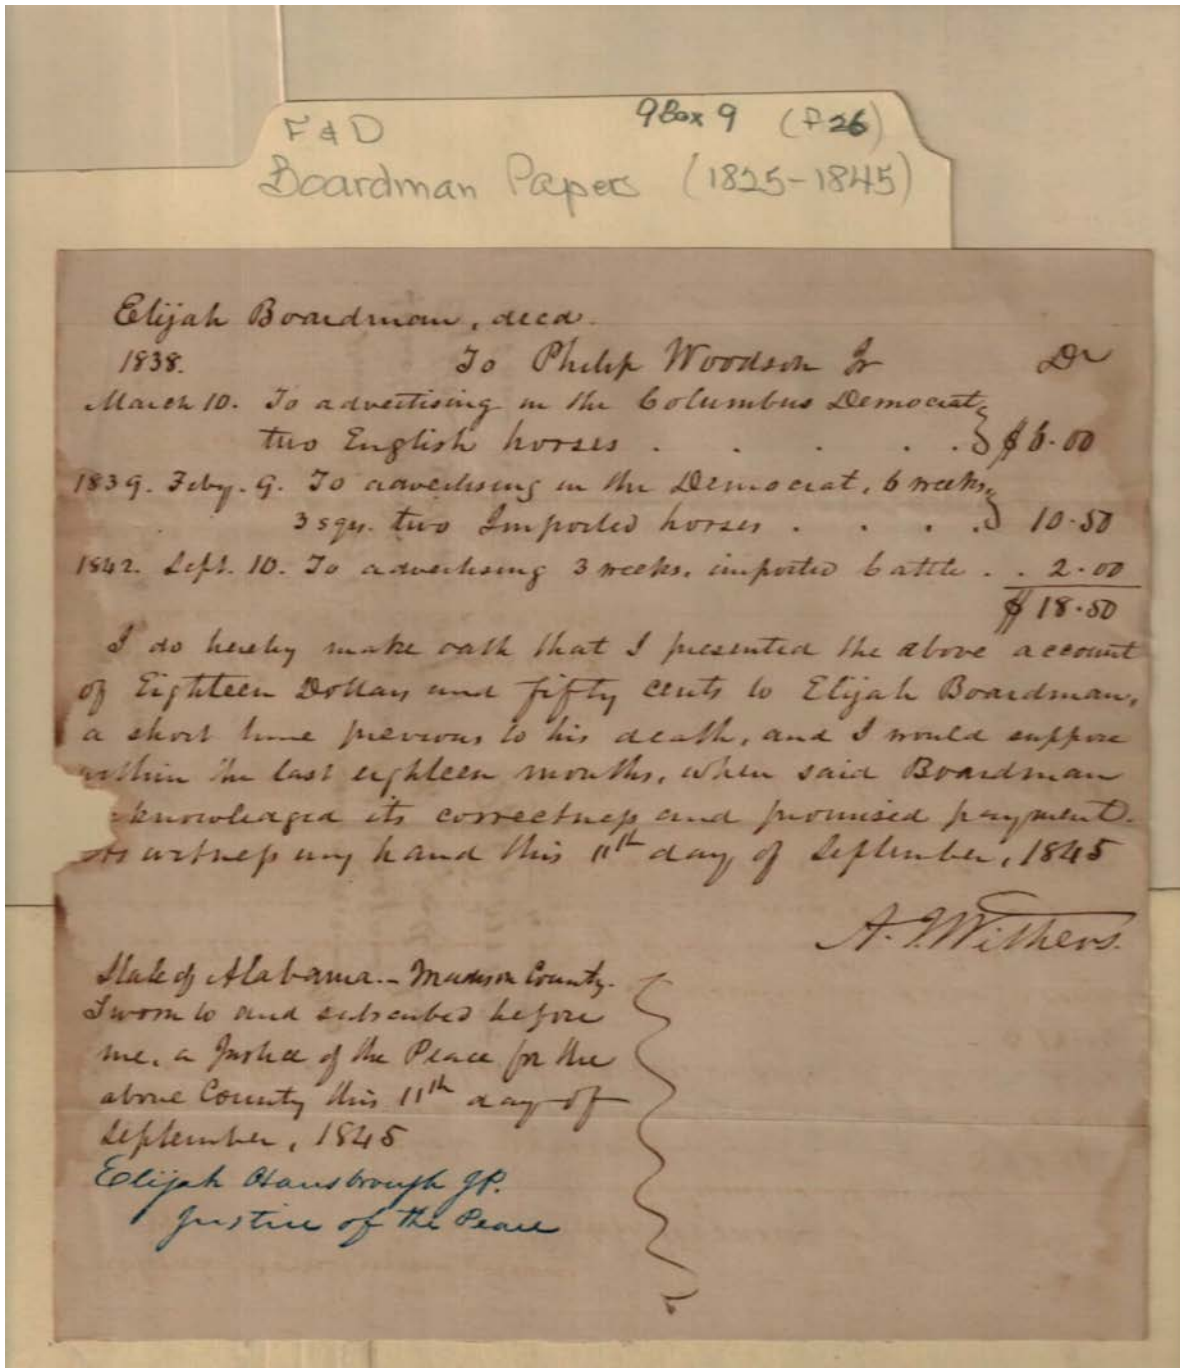 F & D 9 Box 9 (F 26)
Boardman Papers (1825-1845)
Elijah Boardman, decd.
1838. To Philip Woodson Jr Dr
March 10. To advertising in the Columbus Democrat,
two English horses . . . . $6.00
1839. Feby. 9. To advertising in the Democrat, 6 weeks,
3 sqrs. two Imported horses . . . . 10.50
1842. Sept. 10. To advertising 3 weeks, imported Cattle . . 2.00
$18.50
I do hereby make oath that I presented the above account
of Eighteen Dollars and fifty cents to Elijah Boardman,
a short time previous to his death, and I would suppose
within the last eighteen months, when said Boardman
knowledged its correctness and promised payment.
As witness my hand this 11th day of September, 1845
A. J. Withers.
State of Alabama. - Madison County.
Sworn to and subscribed before
me, a Justice of the Peace for the
above County this 11th day of
September, 1845
Elijah Hansbrough JP.
Justice of the Peace